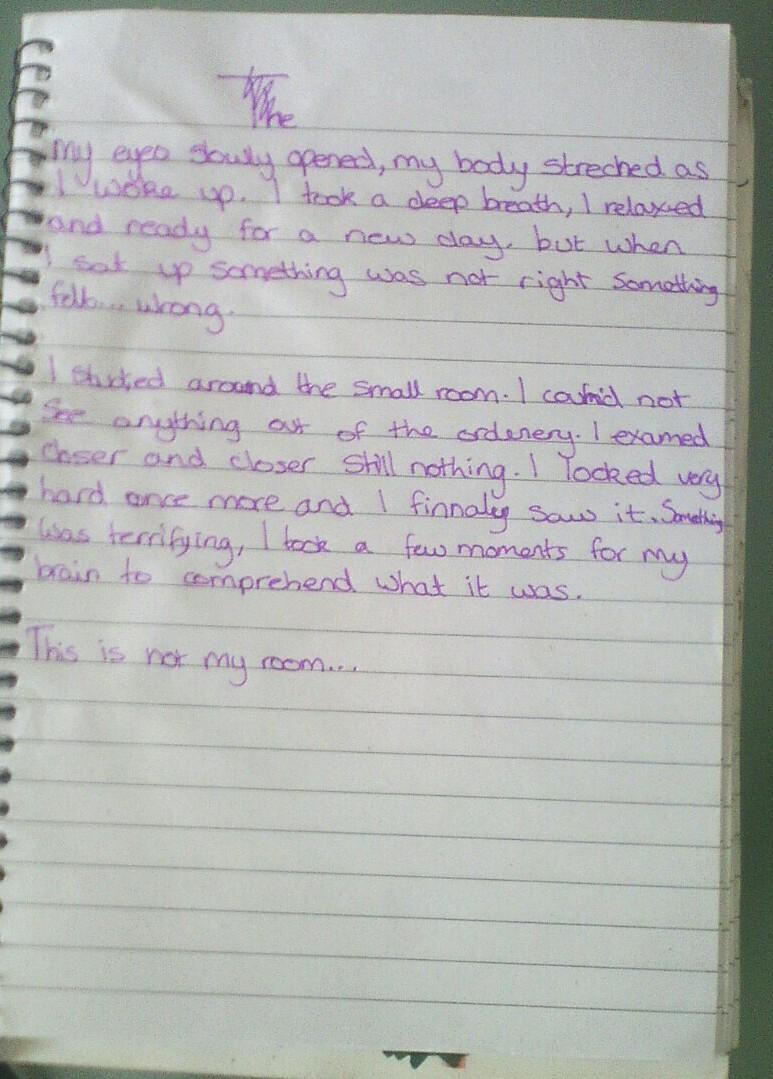 The
My eyes slowly opened, my body streched as
I woke up. I took a deep breath, I relaxed
and ready for a new day. but when
I sat up something was not right something
felt... wrong.
I studied around the small room. I could not
See anything out of the ordenery. I examed
closer and closer still nothing. I looked very
hard once more and I finnaley saw it. Something
was terrifying, I took a few moments for my
brain to comprehend what it was.
This is not my room...